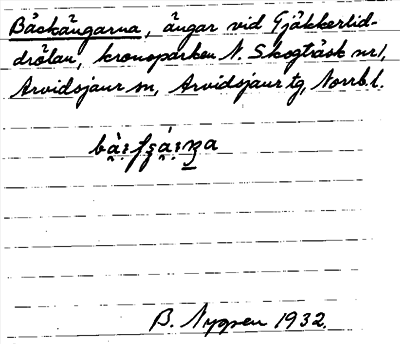 Bäckängarna, ängar vid Tjäkkerlid-
drölan, kronoparken N. Skogträsk nr 1,
Arvidsjaur sn, Arvidsjaur tg, Norrb. l.
B. Nygren 1932.